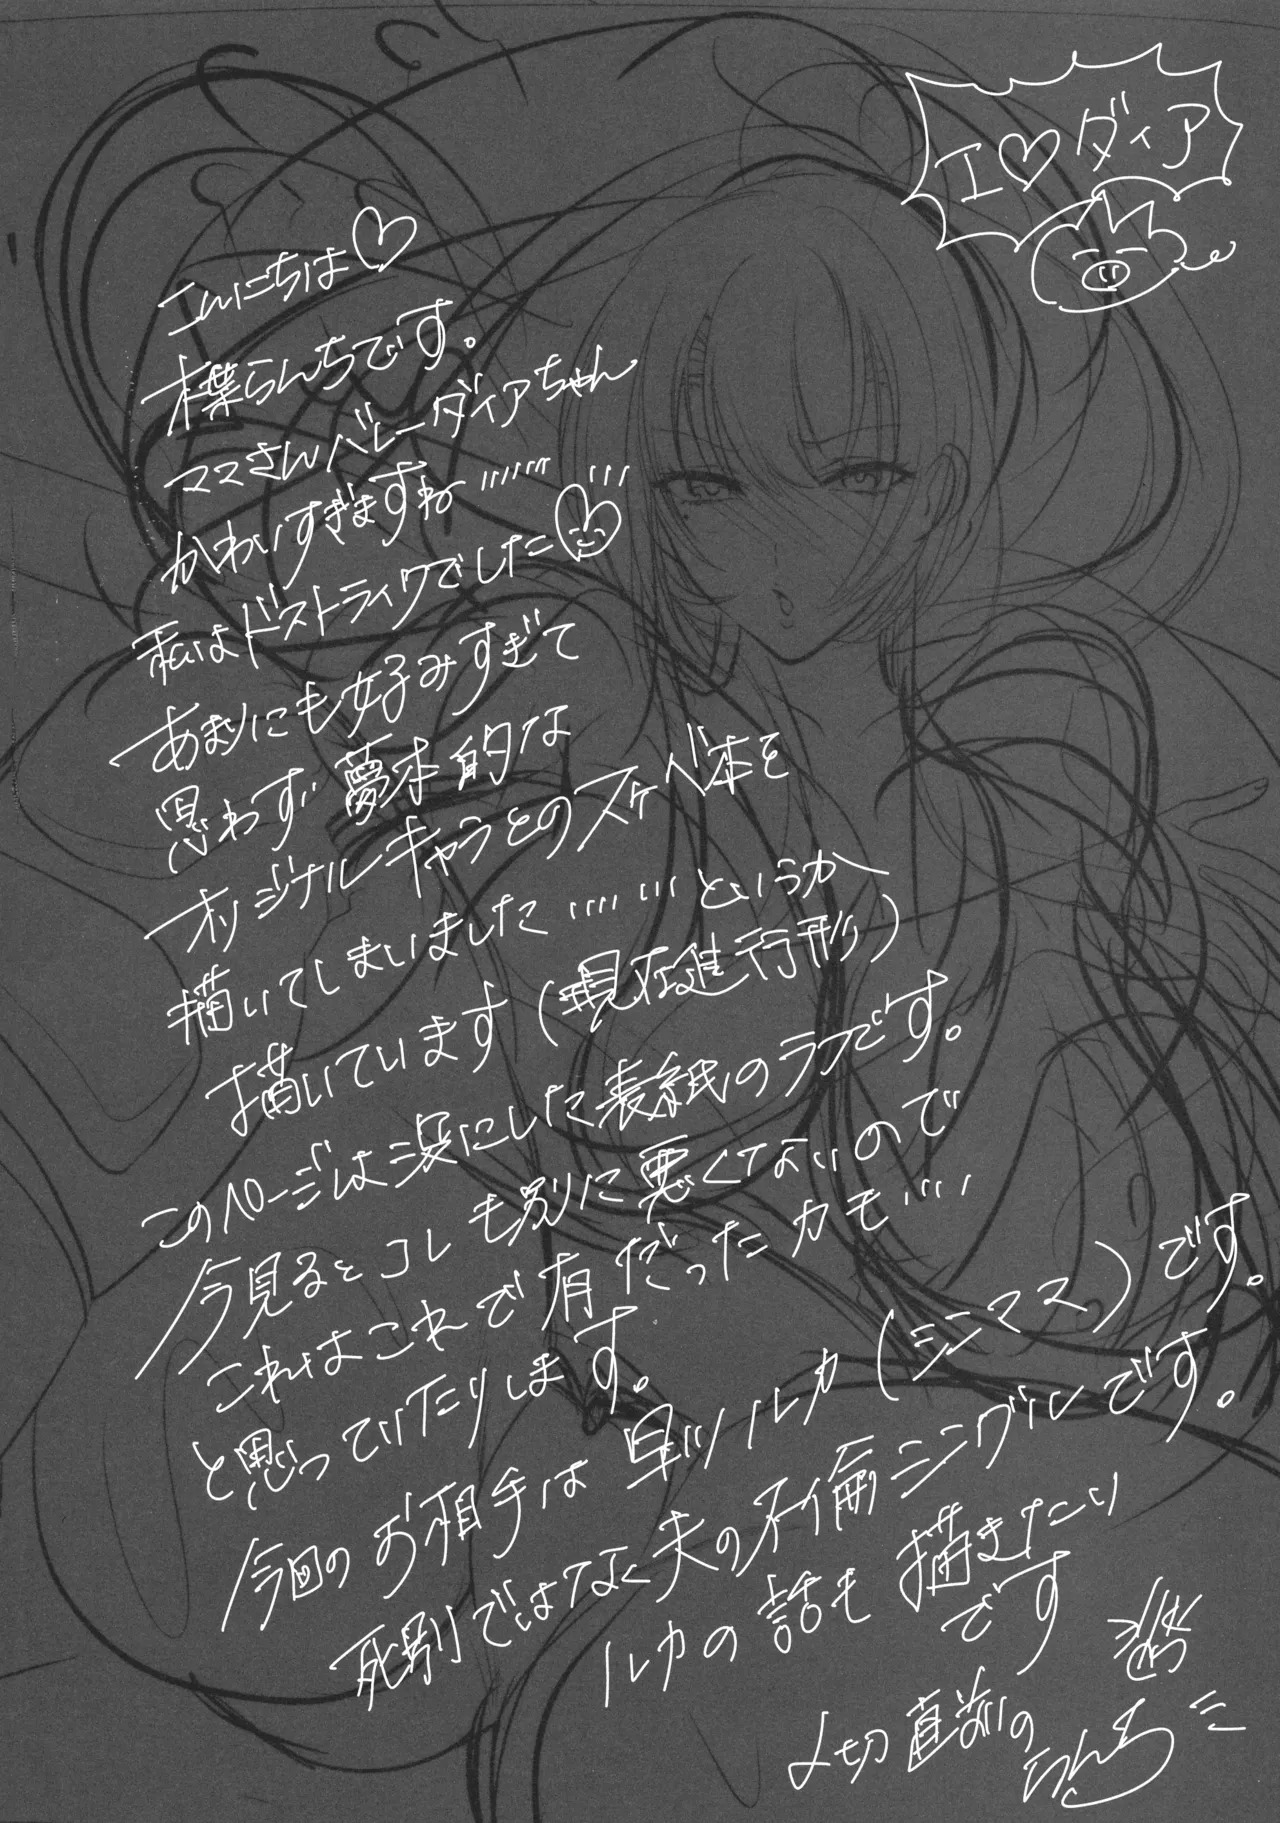 エ♡ダイア
こんにちは♡
楪らんちです。
ママさんバレーダイアちゃん
かわいすぎますね……
私はドストライクでした
あまりにも好みすぎて
思わず夢本的な
オリジナルキャラとのスケベ本を
描いてしまいました……というか
描いています（現在進行形）
このページは没にした表紙のラフです。
今見るとコレも別に悪くてないので
これはこれで有だったカモ…
と思っていたりします。
今回のお相手は早ツルカ（シニマス）です。
死別ではなく夫の不倫シングルです。
ルカの話も描きたい
です
〆切直前の
らんち